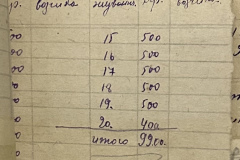 возчика
15 500
16 500
17 500
18 500
19. 500
20. 400
итого 9900.